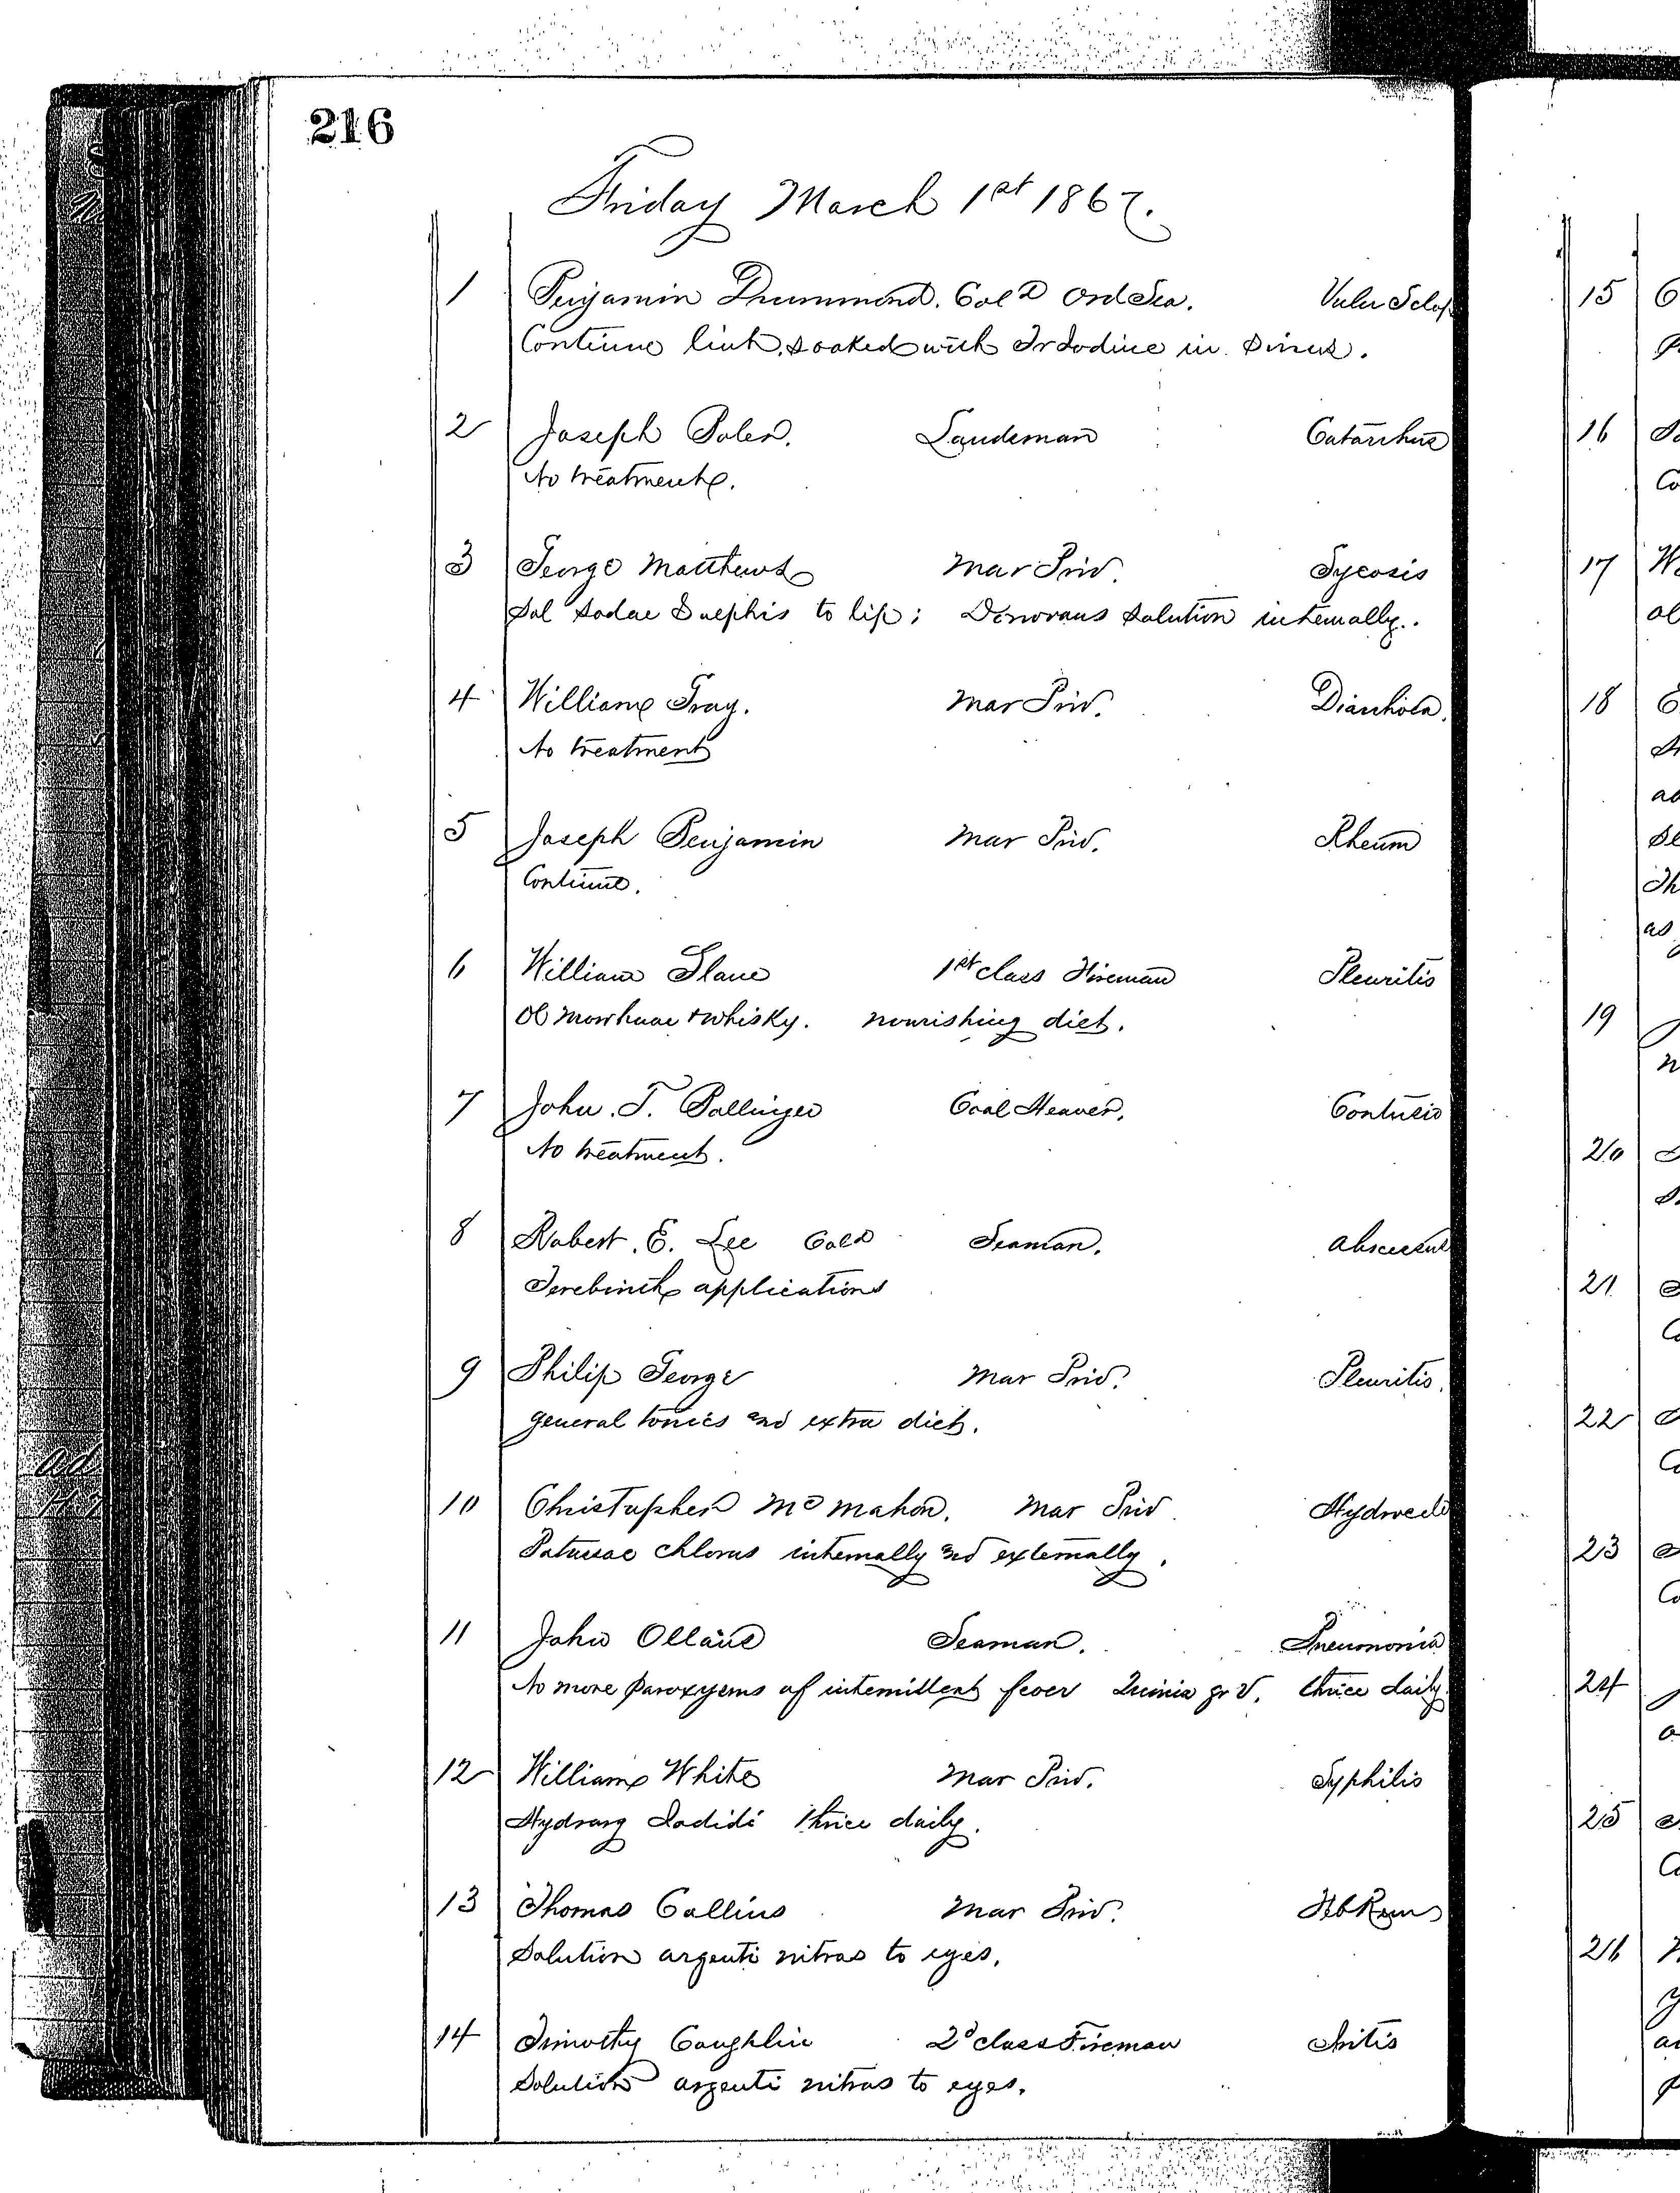 216
Friday March 1st 1867.
1 Benjamin Drummond. Col'd Ord Sea. Vuln Sclop
Continue lint, soaked with Tr Iodine in sinus.
2 Joseph Landsman Catarrhus
No treatment.
3 George Matthews Mar Priv. Sycosis
Sol Sodae Sulphis to lip; Donovans solution internally.
4 William Gray. Mar Priv. Diarrhoea.
No treatment
5 Joseph Benjamin Mar Priv. Rheum
Continue.
6 William Slane 1st class Fireman Pleuritis
Ol Morrhuae & whisky. nourishing diet.
7 John. T. Bollinger Coal Heaver. Contusio
No treatment.
8 Robert. E. Lee Col'd Seaman. Abscessus
Terebinth applications
9 Philip George Mar Priv. Pleuritis.
general tonics and extra diet.
10 Christopher McMahon. Mar Priv Hydrocele
Potassae chloras internally and externally.
11 John Seaman. Pneumonia
No more paroxysms of intermittent fever Quinia gr V. thrice daily.
12 William White Mar Priv. Syphilis
Hydrarg Iodidi thrice daily.
13 Thomas Collins Mar Priv.
Solution argenti nitras to eyes.
14 Timothy Coughlin 2d class Fireman Iritis
Solution argenti nitras to eyes.
15
16
17
18
19
20
21
22
23
24
25
26